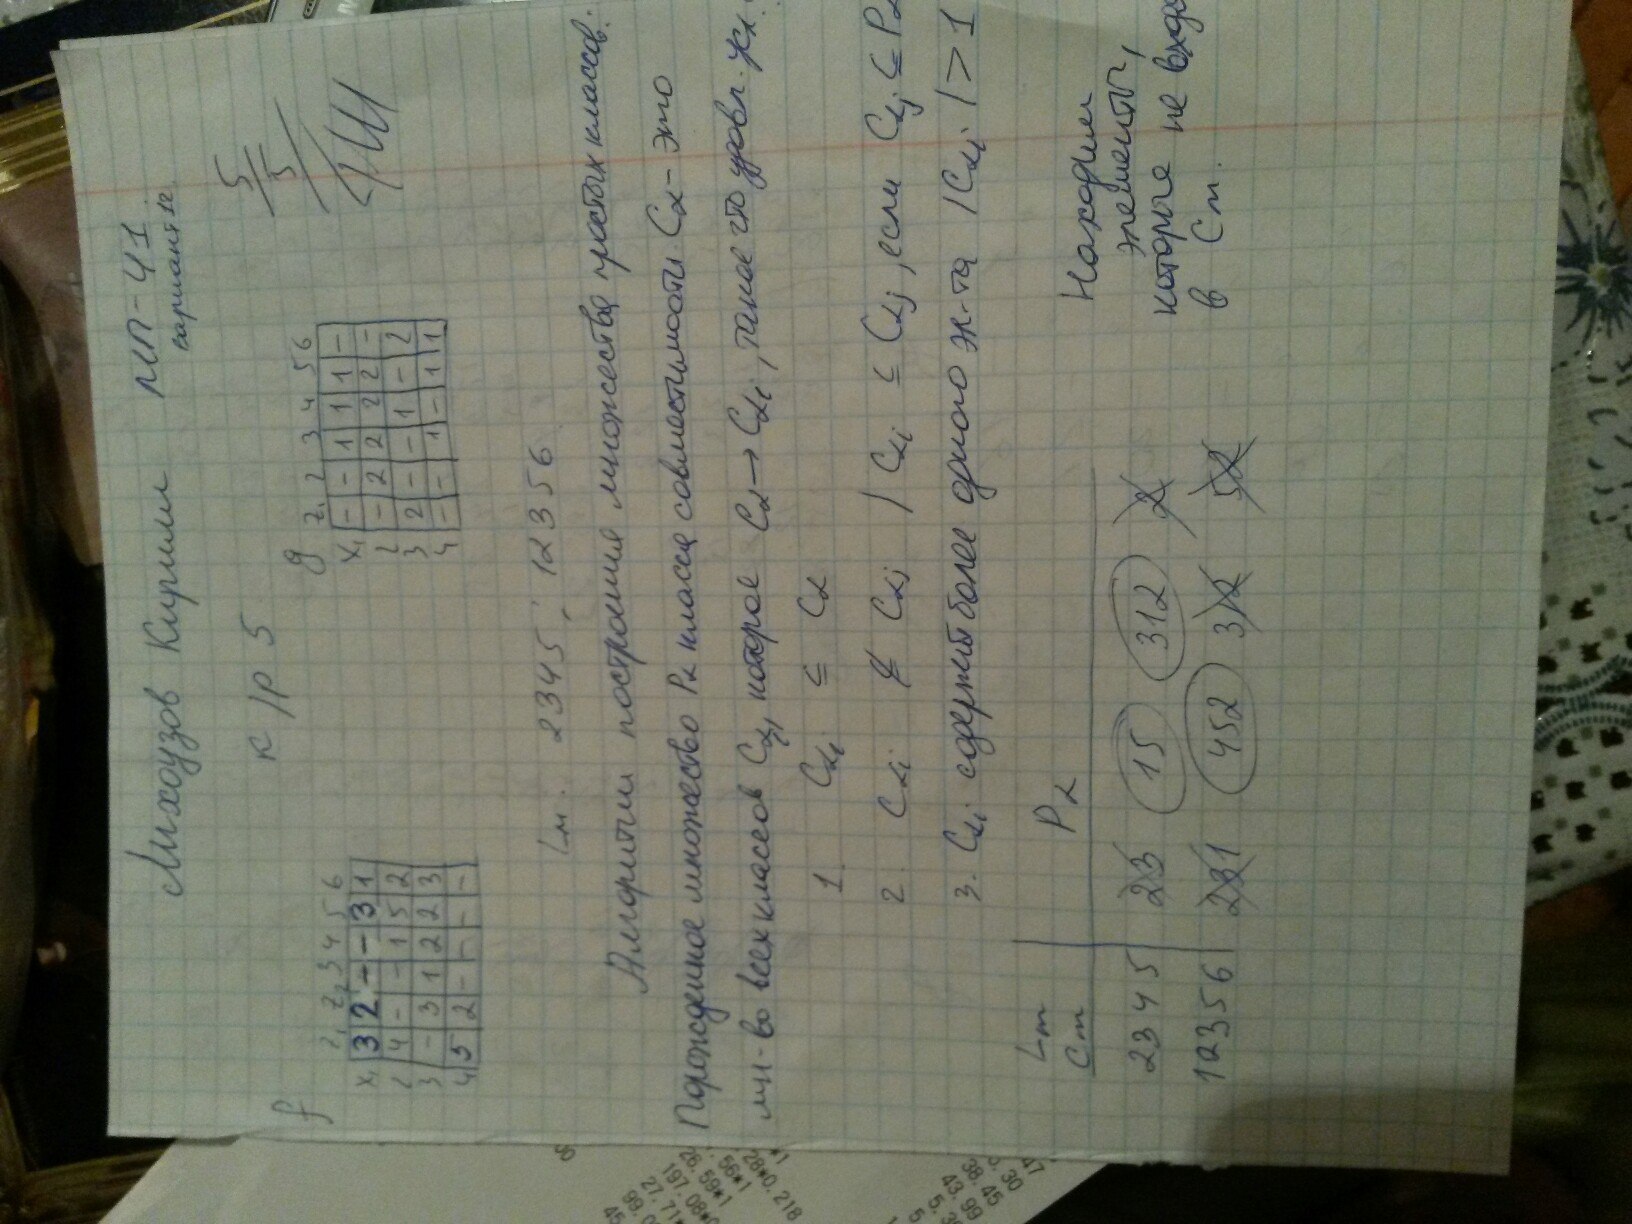 Михоузов Кирилл МП-41
вариант 12
к/р 5
5/5
f
z₁ z₂ 3 4 5 6
x₁ 3 2 - - 3 1
2 4 - - 1 5 2
3 - 3 1 2 2 3
4 5 2 - - - -
g
z₁ 2 3 4 5 6
x₁ - - 1 1 1 -
2 - 2 2 2 2 -
3 2 - - 1 - 2
4 - - 1 - 1 1
Lм. 2345; 12356
Алгоритм построения множества простых классов:
Порожденное множество Pα класса совместимости Cα - это
мн-во всех классов Cαi которое Cα → Cαi, такое что удовл. усл.:
1. Cαi ⊆ Cα
2. Cαi ⊈ Cαj / Cαi ⊆ Cαj, если Cαj ⊆ Pα
3. Cαi содержит более одного эл-та |Cαi| > 1
Lm
Cm Pα
2345 23 15 312 2
12356 231 452 312 52
Находим
элементы,
которые не входя
в Cm.